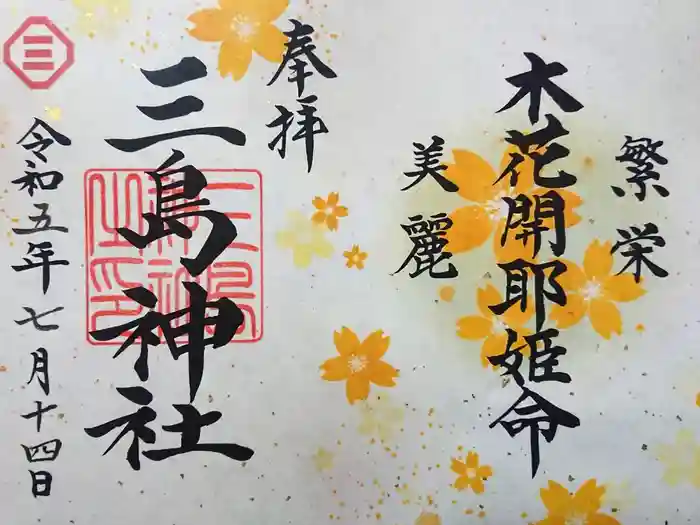 繁栄
木花開耶姫命
美麗
奉拝
三島神社
令和五年七月十四日
三
三島神社之印